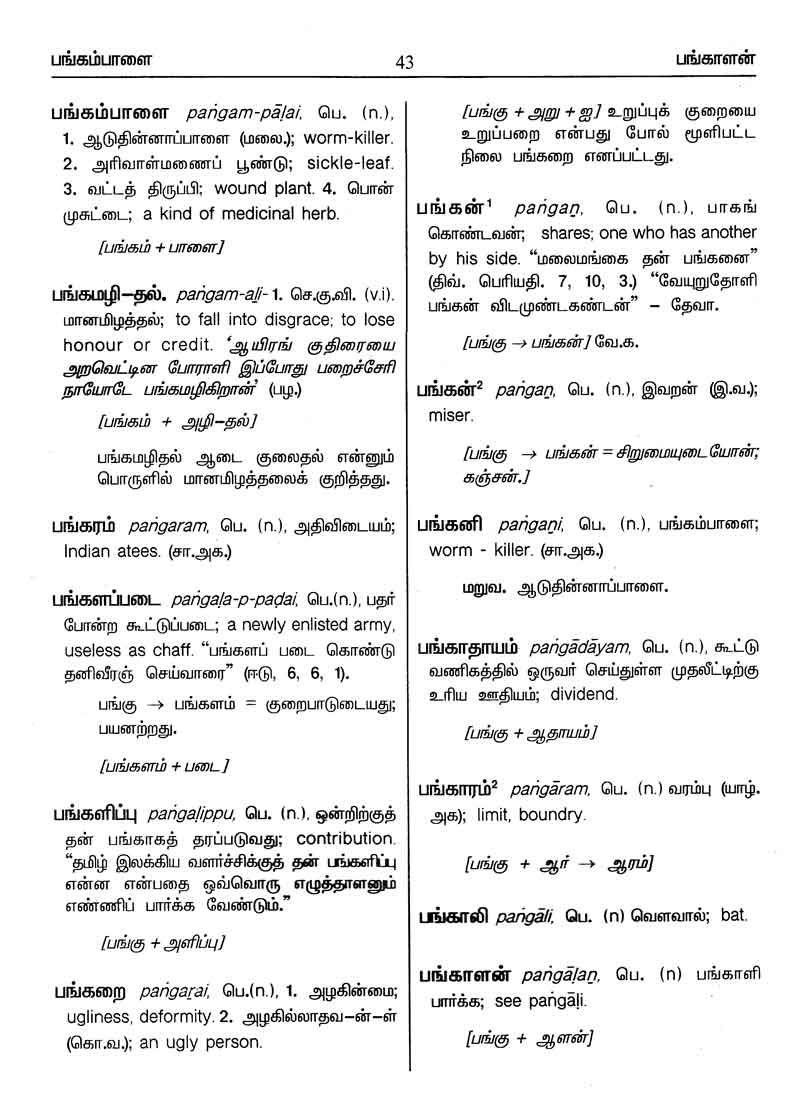 பங்கம்பாளை
43
பங்காளன்
பங்கம்பாளை paṅgam-pāḷai, பெ. (n.),
1. ஆடுதின்னாப்பாளை (மலை.); worm-killer.
2. அரிவாள்மணைப் பூண்டு; sickle-leaf.
3. வட்டத் திருப்பி; wound plant. 4. பொன்
முசுட்டை; a kind of medicinal herb.
[பங்கம் + பாளை]
பங்கமழி–தல். paṅgam-aḻi- 1. செ.கு.வி. (v.i).
மானமிழத்தல்; to fall into disgrace; to lose
honour or credit. ‘ஆயிரங் குதிரையை
அறவெட்டின போராளி இப்போது பறைச்சேரி
நாயோடே பங்கமழிகிறான்’ (பழ.)
[பங்கம் + அழி–தல்]
பங்கமழிதல் ஆடை குலைதல் என்னும்
பொருளில் மானமிழத்தலைக் குறித்தது.
பங்கரம் paṅgaram, பெ. (n.), அதிவிடையம்;
Indian atees. (சா.அக.)
பங்களப்படை paṅgaḷa-p-paḍai, பெ.(n.), பதர்
போன்ற கூட்டுப்படை; a newly enlisted army,
useless as chaff. “பங்களப் படை கொண்டு
தனிவீரஞ் செய்வாரை” (ஈடு, 6, 6, 1).
பங்கு → பங்களம் = குறைபாடுடையது;
பயனற்றது.
[பங்களம் + படை]
பங்களிப்பு paṅgaḷippu, பெ. (n.), ஒன்றிற்குத்
தன் பங்காகத் தரப்படுவது; contribution.
“தமிழ் இலக்கிய வளர்ச்சிக்குத் தன் பங்களிப்பு
என்ன என்பதை ஒவ்வொரு எழுத்தாளனும்
எண்ணிப் பார்க்க வேண்டும்.”
[பங்கு + அளிப்பு]
பங்கறை paṅgaṟai, பெ.(n.), 1. அழகின்மை;
ugliness, deformity. 2. அழகில்லாதவ–ன்–ள்
(கொ.வ.); an ugly person.
[பங்கு + அறு + ஐ] உறுப்புக் குறையை
உறுப்பறை என்பது போல் மூளிபட்ட
நிலை பங்கறை எனப்பட்டது.
பங்கன்¹ paṅgaṉ, பெ. (n.), பாகங்
கொண்டவன்; shares; one who has another
by his side. “மலைமங்கை தன் பங்கனை”
(திவ். பெரியதி. 7, 10, 3.) “வேயுறுதோளி
பங்கன் விடமுண்டகண்டன்” – தேவா.
[பங்கு → பங்கன்] வே.க.
பங்கன்² paṅgaṉ, பெ. (n.), இவறன் (இ.வ.);
miser.
[பங்கு → பங்கன் = சிறுமையுடையோன்;
கஞ்சன்.]
பங்கனி paṅgaṉi, பெ. (n.), பங்கம்பாளை;
worm - killer. (சா.அக.)
மறுவ. ஆடுதின்னாப்பாளை.
பங்காதாயம் paṅgādāyam, பெ. (n.), கூட்டு
வணிகத்தில் ஒருவர் செய்துள்ள முதலீட்டிற்கு
உரிய ஊதியம்; dividend.
[பங்கு + ஆதாயம்]
பங்காரம்² paṅgāram, பெ. (n.) வரம்பு (யாழ்.
அக); limit, boundry.
[பங்கு + ஆர் → ஆரம்]
பங்காலி paṅgāli, பெ. (n) வௌவால்; bat.
பங்காளன் paṅgāḷaṉ, பெ. (n) பங்காளி
பார்க்க; see paṅgāḷi.
[பங்கு + ஆளன்]